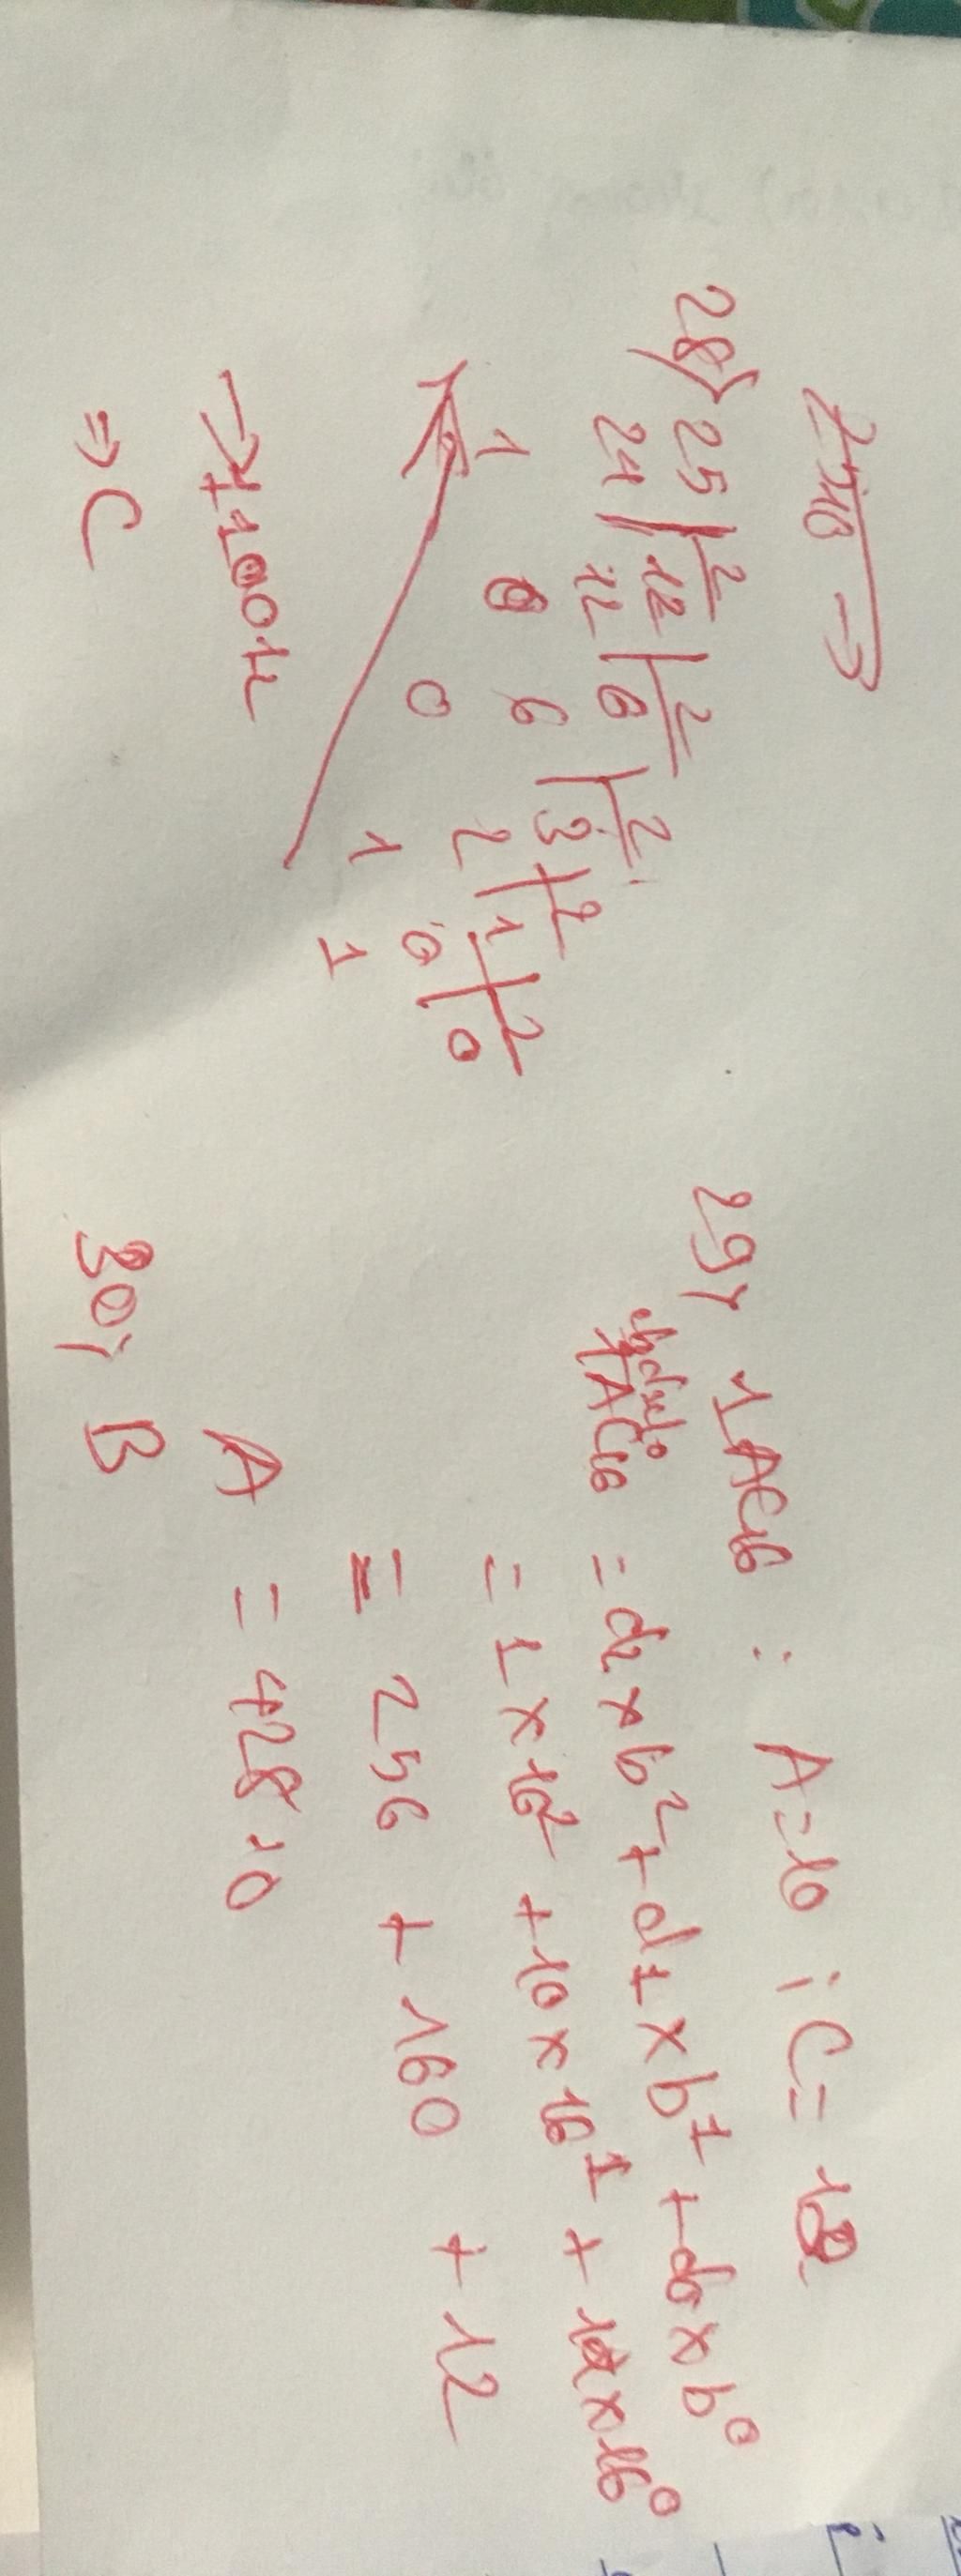 25 10 →
28, 25 | 2
24 | 12 | 2
1 12 | 6 | 2
0 6 | 3 | 2
0 2 | 1 | 2
1 0 | 0
1
→ 11001
⇒ C
29, 1AC16 : A=10 ; C=12
1AC16 = d2 x b² + d1 x b¹ + d0 x b⁰
= 1 x 16² + 10 x 16¹ + 12 x 16⁰
= 256 + 160 + 12
A = 428 10
30, B